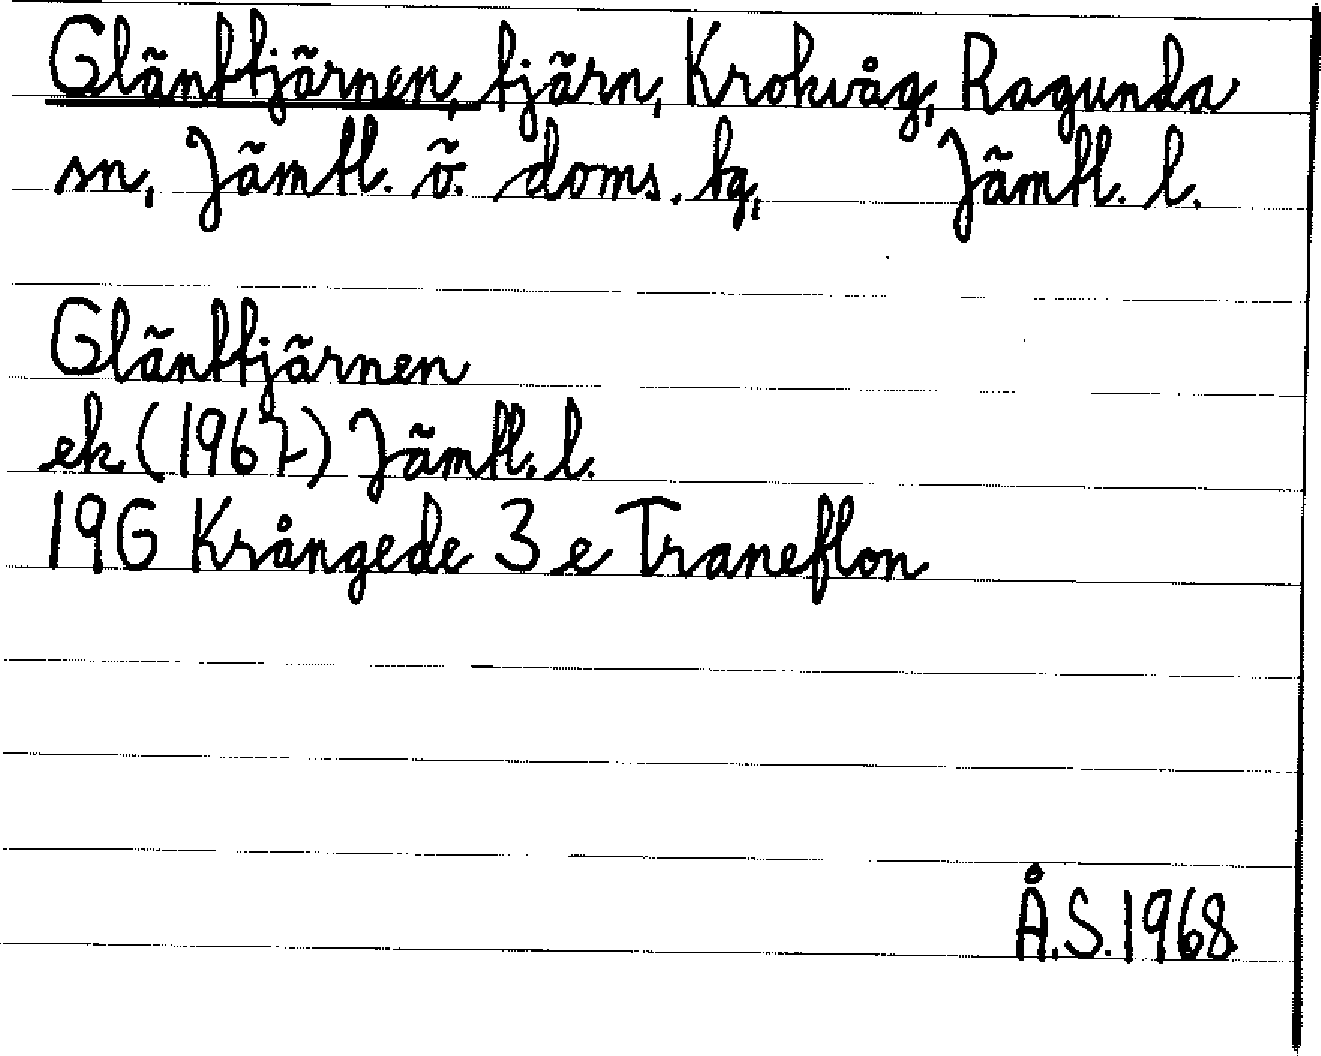 Glänttjärnen, tjärn, Krokvåg, Ragunda
sn, Jämtl. ö. doms. tg, Jämtl. l.
Glänttjärnen
ek (1967) Jämtl. l.
19G Krångede 3 e Traneflon
Å.S. 1968